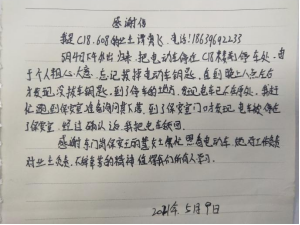 感谢信
我是C18.608的业主谭有飞，电话：18639692233
5月4日下午外出归来，把电动车停在C18楼前停车处，由
于个人粗心大意，忘记拔掉电动车钥匙，直到晚上八点左右
才发现没拔车钥匙，到了停车的地方，发现电车已不在原处，我赶
忙跑到保安室准备询问贾不底，到了保安室门口才发现电车被停在
了保安室，经过确认后，我把电车领回。
感谢东门岗保安王的董女士帮忙照看电动车，她对工作负责
对业主负责，不辞辛苦的精神值得我们所有人学习。
2021年5月9日